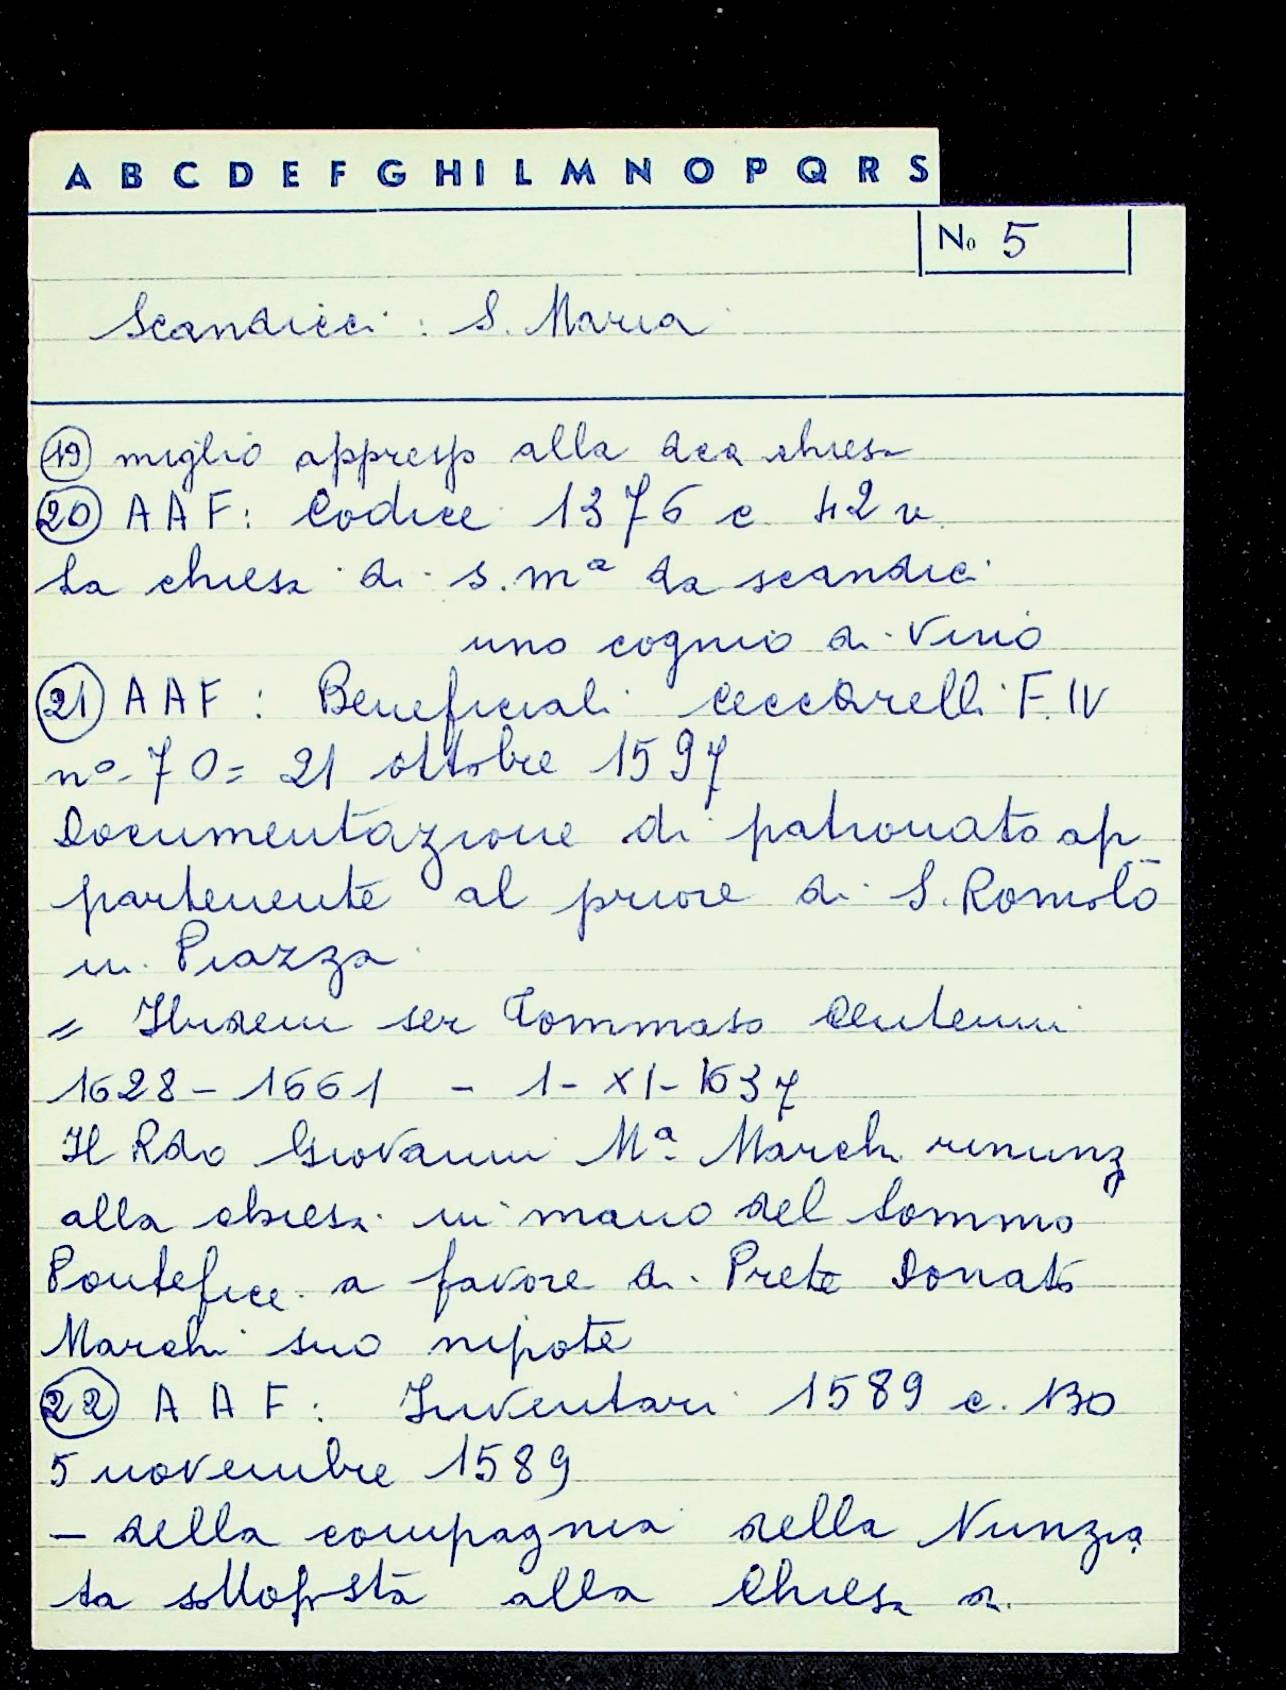 A B C D E F G H I L M N O P Q R S
No 5
Scandicci : S. Maria
19 miglio appresso alla dca chiesa
20 AAF: Codice 1376 c 42 v.
La chiesa di S. Mª da scandici
uno cognio di vino
21 AAF : Beneficiali Ceccarelli F. IV
nº 70 = 21 ottobre 1597
Documentazione di patronato ap
partenente al priore di S. Romolo
in Piazza
= Ibidem ser Tommaso Centenni
1628 - 1661 - 1 - XI - 1637
Il Rdo Giovanni Mª Marchi rinunz
alla chiesa in mano del Sommo
Pontefice a favore di Prete Donato
Marchi suo nipote
22 AAF : Inventari 1589 c. 130
5 novembre 1589
- della compagnia della Nunzia
ta sottoposta alla Chiesa di